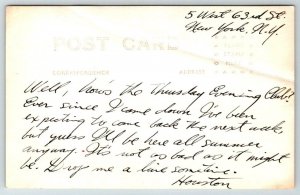 5 West 63rd St.
New York, N.Y.
POST CARD
CORRESPONDENCE
ADDRESS
Well, how's the Thursday Evening Club?
Ever since I came down I've been
expecting to come back the next week
but guess I'll be here all summer
anyway. It's not as bad as it might
be. Drop me a line sometime.
Houston